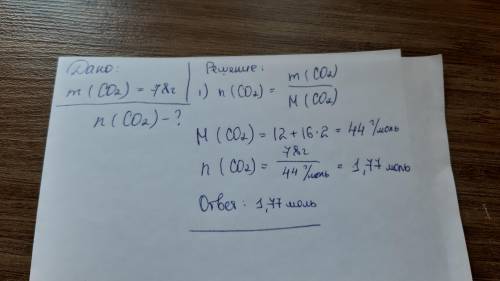 Дано:
m (CO₂) = 78г
n (CO₂) - ?
Решение:
1) n (CO₂) = m (CO₂) / M (CO₂)
M (CO₂) = 12 + 16 · 2 = 44 г/моль
n (CO₂) = 78г / 44 г/моль = 1,77 моль
Ответ: 1,77 моль